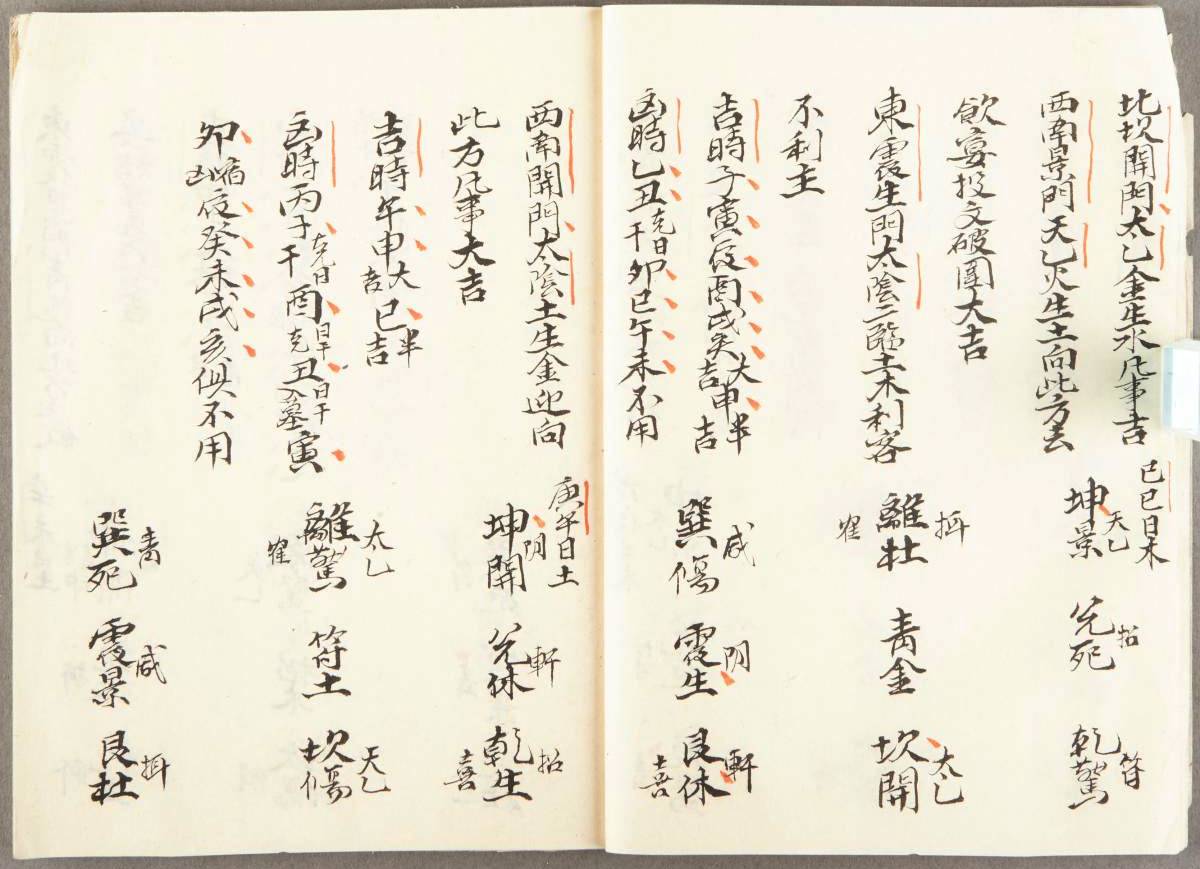 北坎開門太乙金生水凡事吉
西南景門天乙火生土向此方去
飲宴投文破圍大吉
東震生門太陰二臨土木利客
不利主
吉時子寅辰酉戌亥大吉申半吉
凶時乙丑克日干卯巳午未不用
己巳日木
坤景天乙 兌死招 乾驚符
離杜搖 青金 坎開太乙
巽傷咸 震生阴 艮休軒喜
西南開門太陰土生金迎向
此方凡事大吉
吉時午申大吉巳半吉
凶時丙子克日干酉日干克丑日干入墓寅
卯凶辰癸未戌亥俱不用
庚午日土
坤開阴 兌休軒 乾生招喜
離驚太乙 符土 坎傷天乙
巽死青 震景咸 艮杜